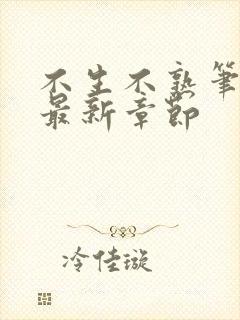 不生不熟筆
最新章節
冷佳璇